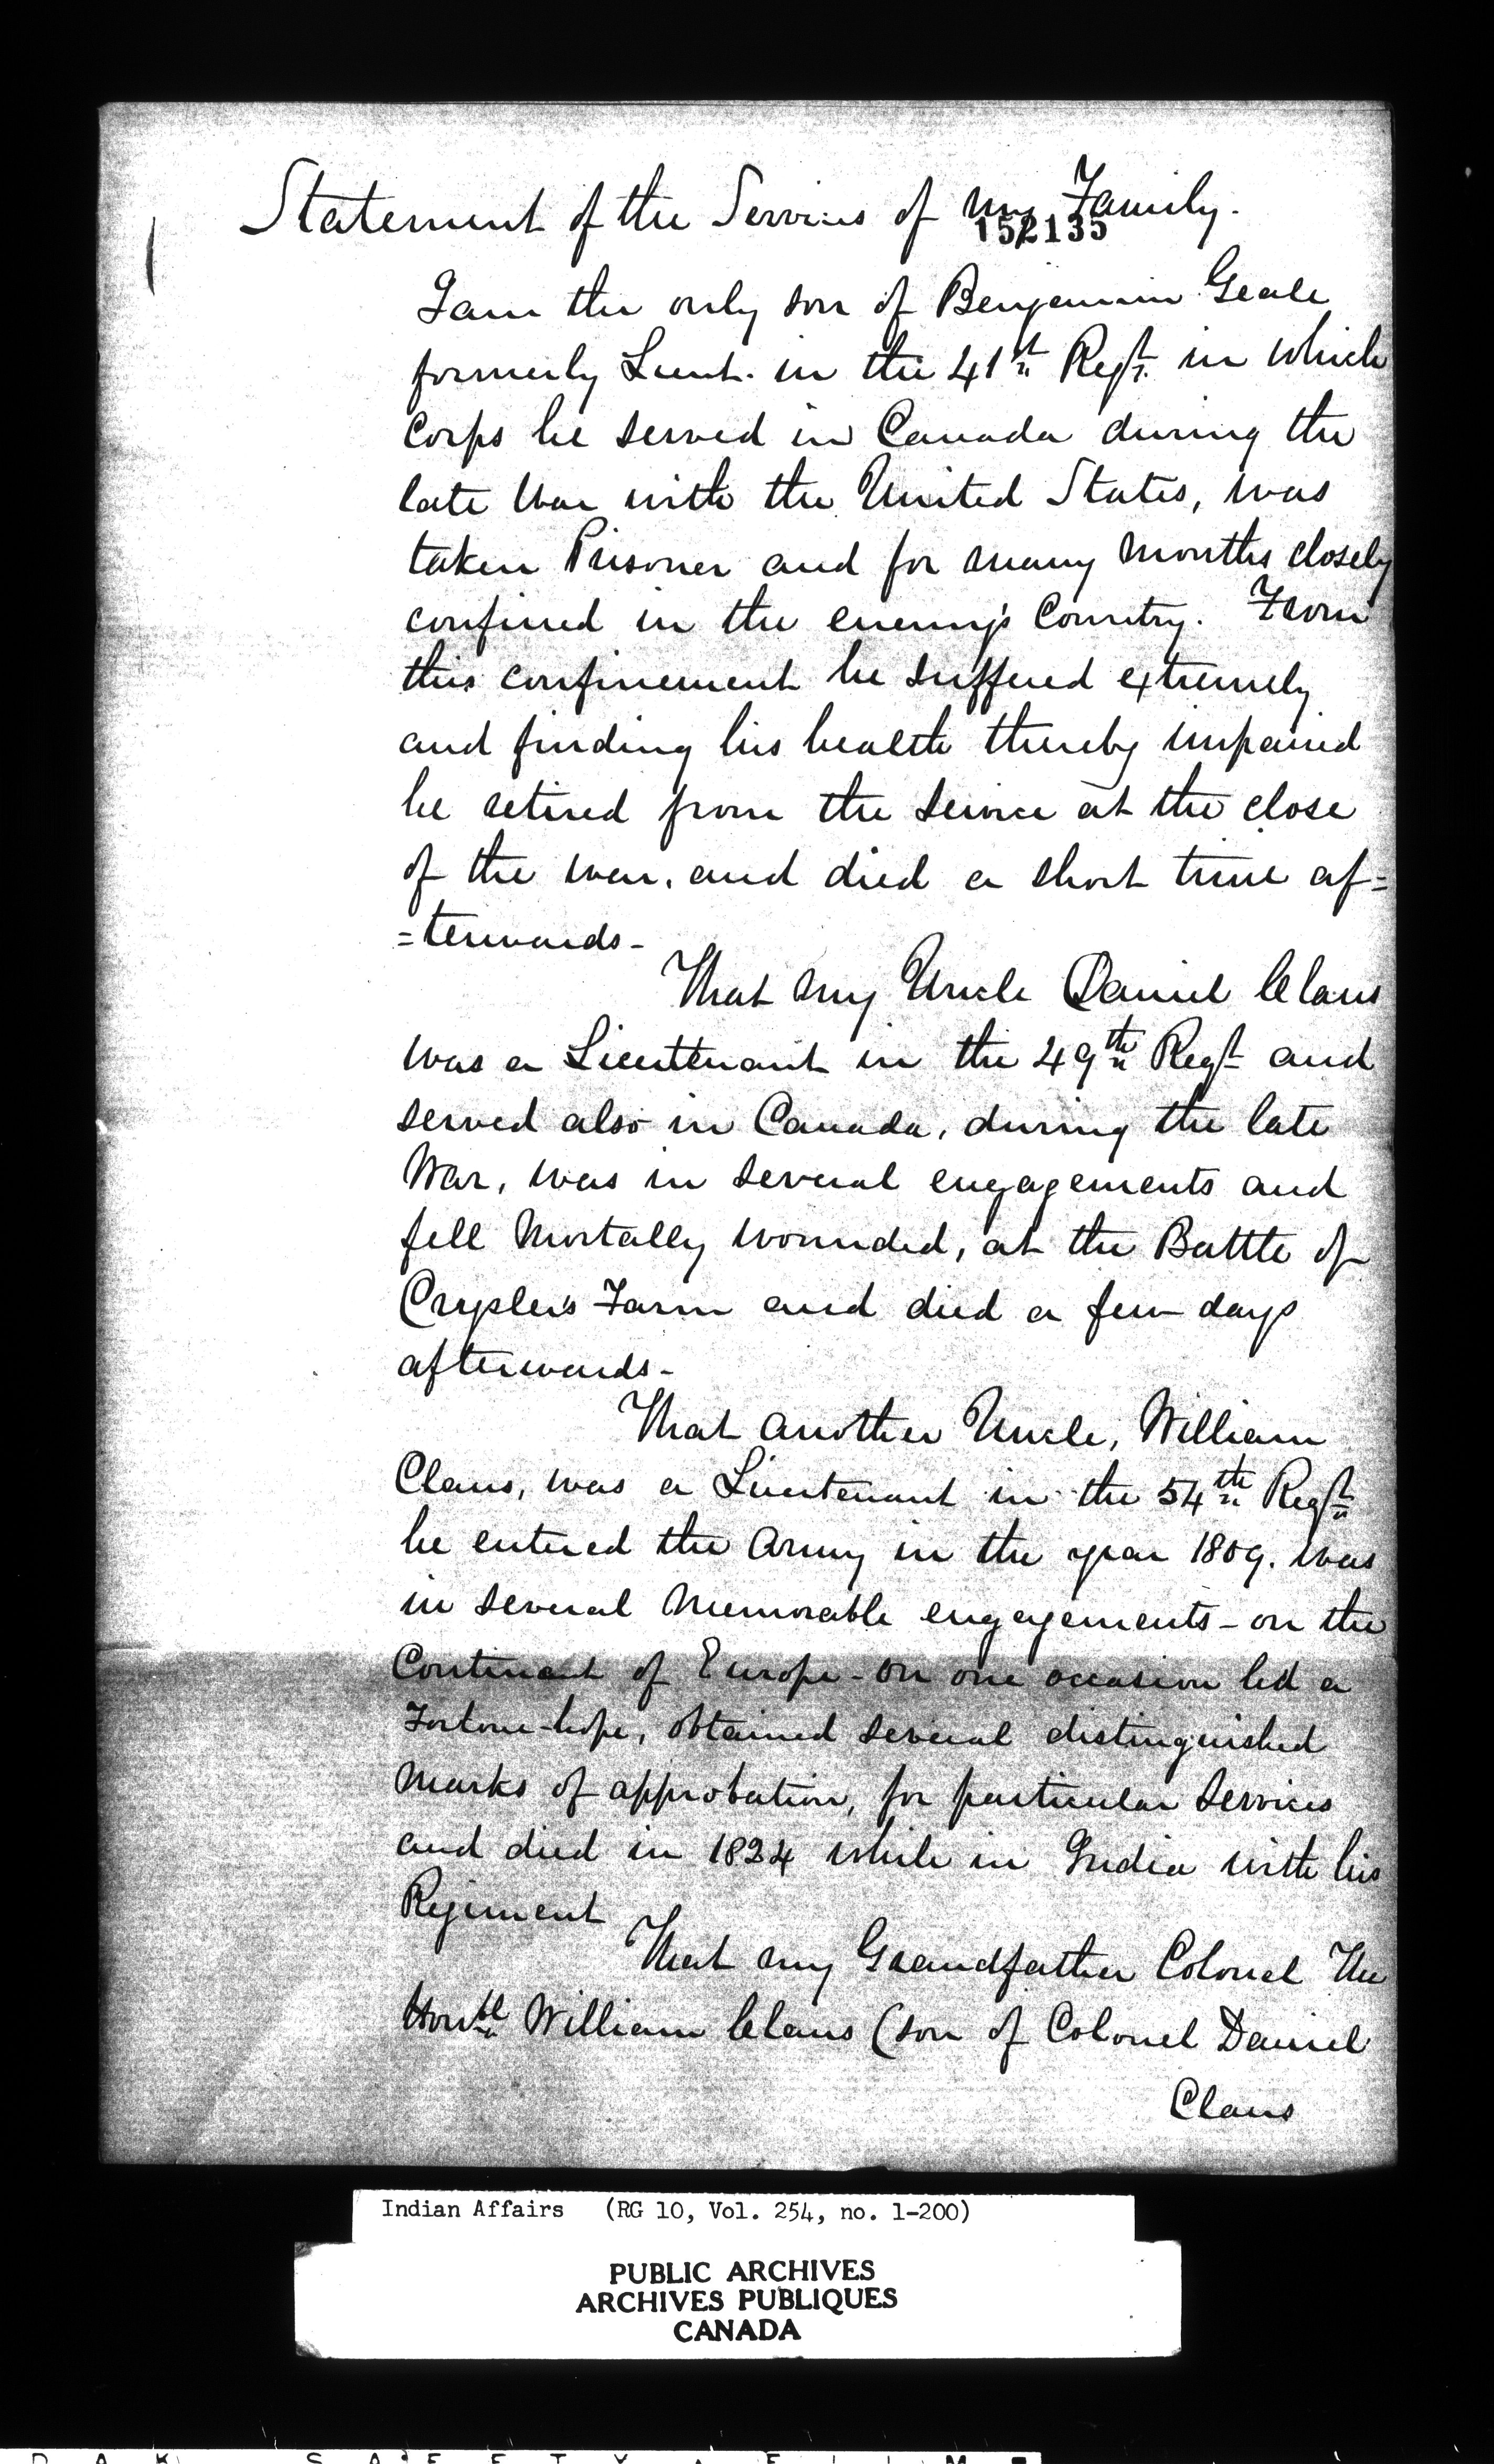 Statement of the Services of my Family.
152135
I am the only son of Benjamin Geale
formerly Lieut. in the 41st Regt. in which
Corps he served in Canada during the
late War with the United States, was
taken Prisoner and for many Months closely
confined in the enemy's Country. From
this confinement he suffered extremely
and finding his health thereby impaired
he retired from the Service at the close
of the war, and died a short time af=
=terwards-
That my Uncle Daniel Claus
was a Lieutenant in the 49th Regt and
served also in Canada, during the late
War, was in several engagements and
fell Mortally wounded, at the Battle of
Crysler's Farm and died a few days
afterwards-
That another Uncle, William
Claus, was a Lieutenant in the 54th Regt
he entered the Army in the year 1809. was
in several Memorable engagements - on the
Continent of Europe - on one occasion led a
Forlorn-hope, obtained several distinguished
Marks of approbation, for particular Services
and died in 1824 while in India with his
Regiment
That my Grandfather Colonel The
Honbl William Claus (son of Colonel Daniel
Claus
Indian Affairs (RG 10, Vol. 254, no. 1-200)
PUBLIC ARCHIVES
ARCHIVES PUBLIQUES
CANADA